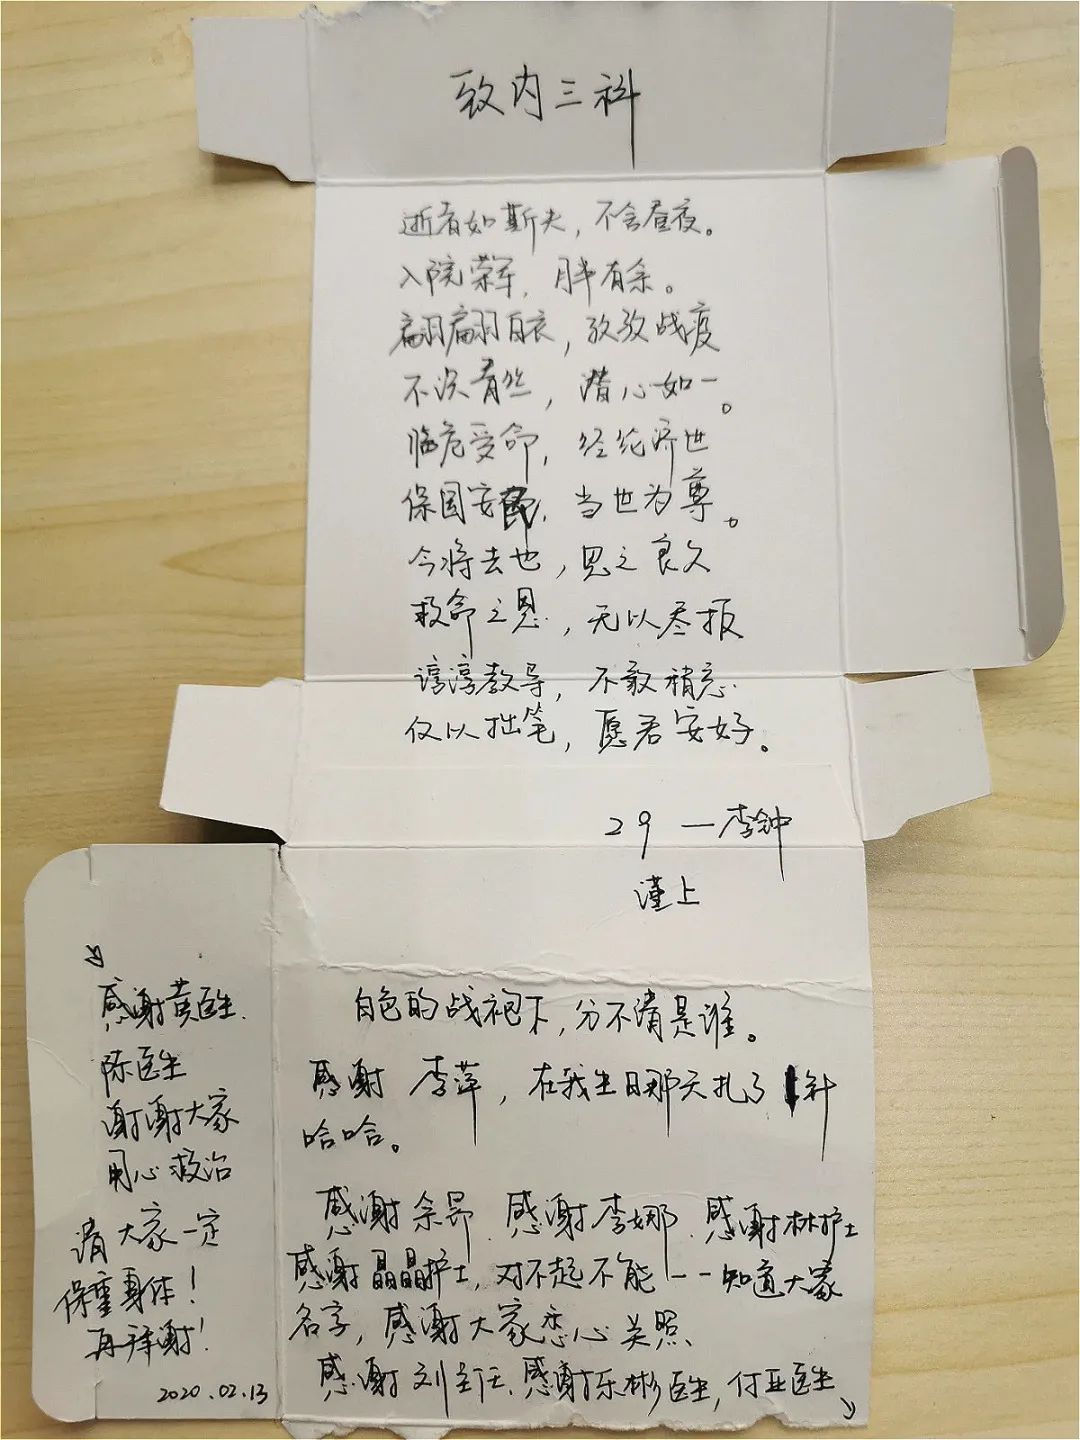 致内三科
逝者如斯夫，不舍昼夜。
入院荣军，月半有余。
翩翩白衣，孜孜战疫
不泯青丝，潜心如一。
临危受命，经纶济世
保国安民，当世为尊。
今将去也，思之良久
救命之恩，无以尽报
谆谆教导，不敢稍忘
仅以拙笔，愿君安好。
29 —李钟
谨上
白色的战袍下，分不清是谁。
感谢 李萍，在我生日那天扎了1针
哈哈。
感谢余昂 感谢李娜 感谢林护士
感谢晶晶护士，对不起不能一一知道大家
名字，感谢大家悉心关照
感谢刘主任、感谢乐彬医生，付亚医生
感谢黄医生
陈医生
谢谢大家
用心救治
请大家一定
保重身体！
再拜谢！
2020.02.13